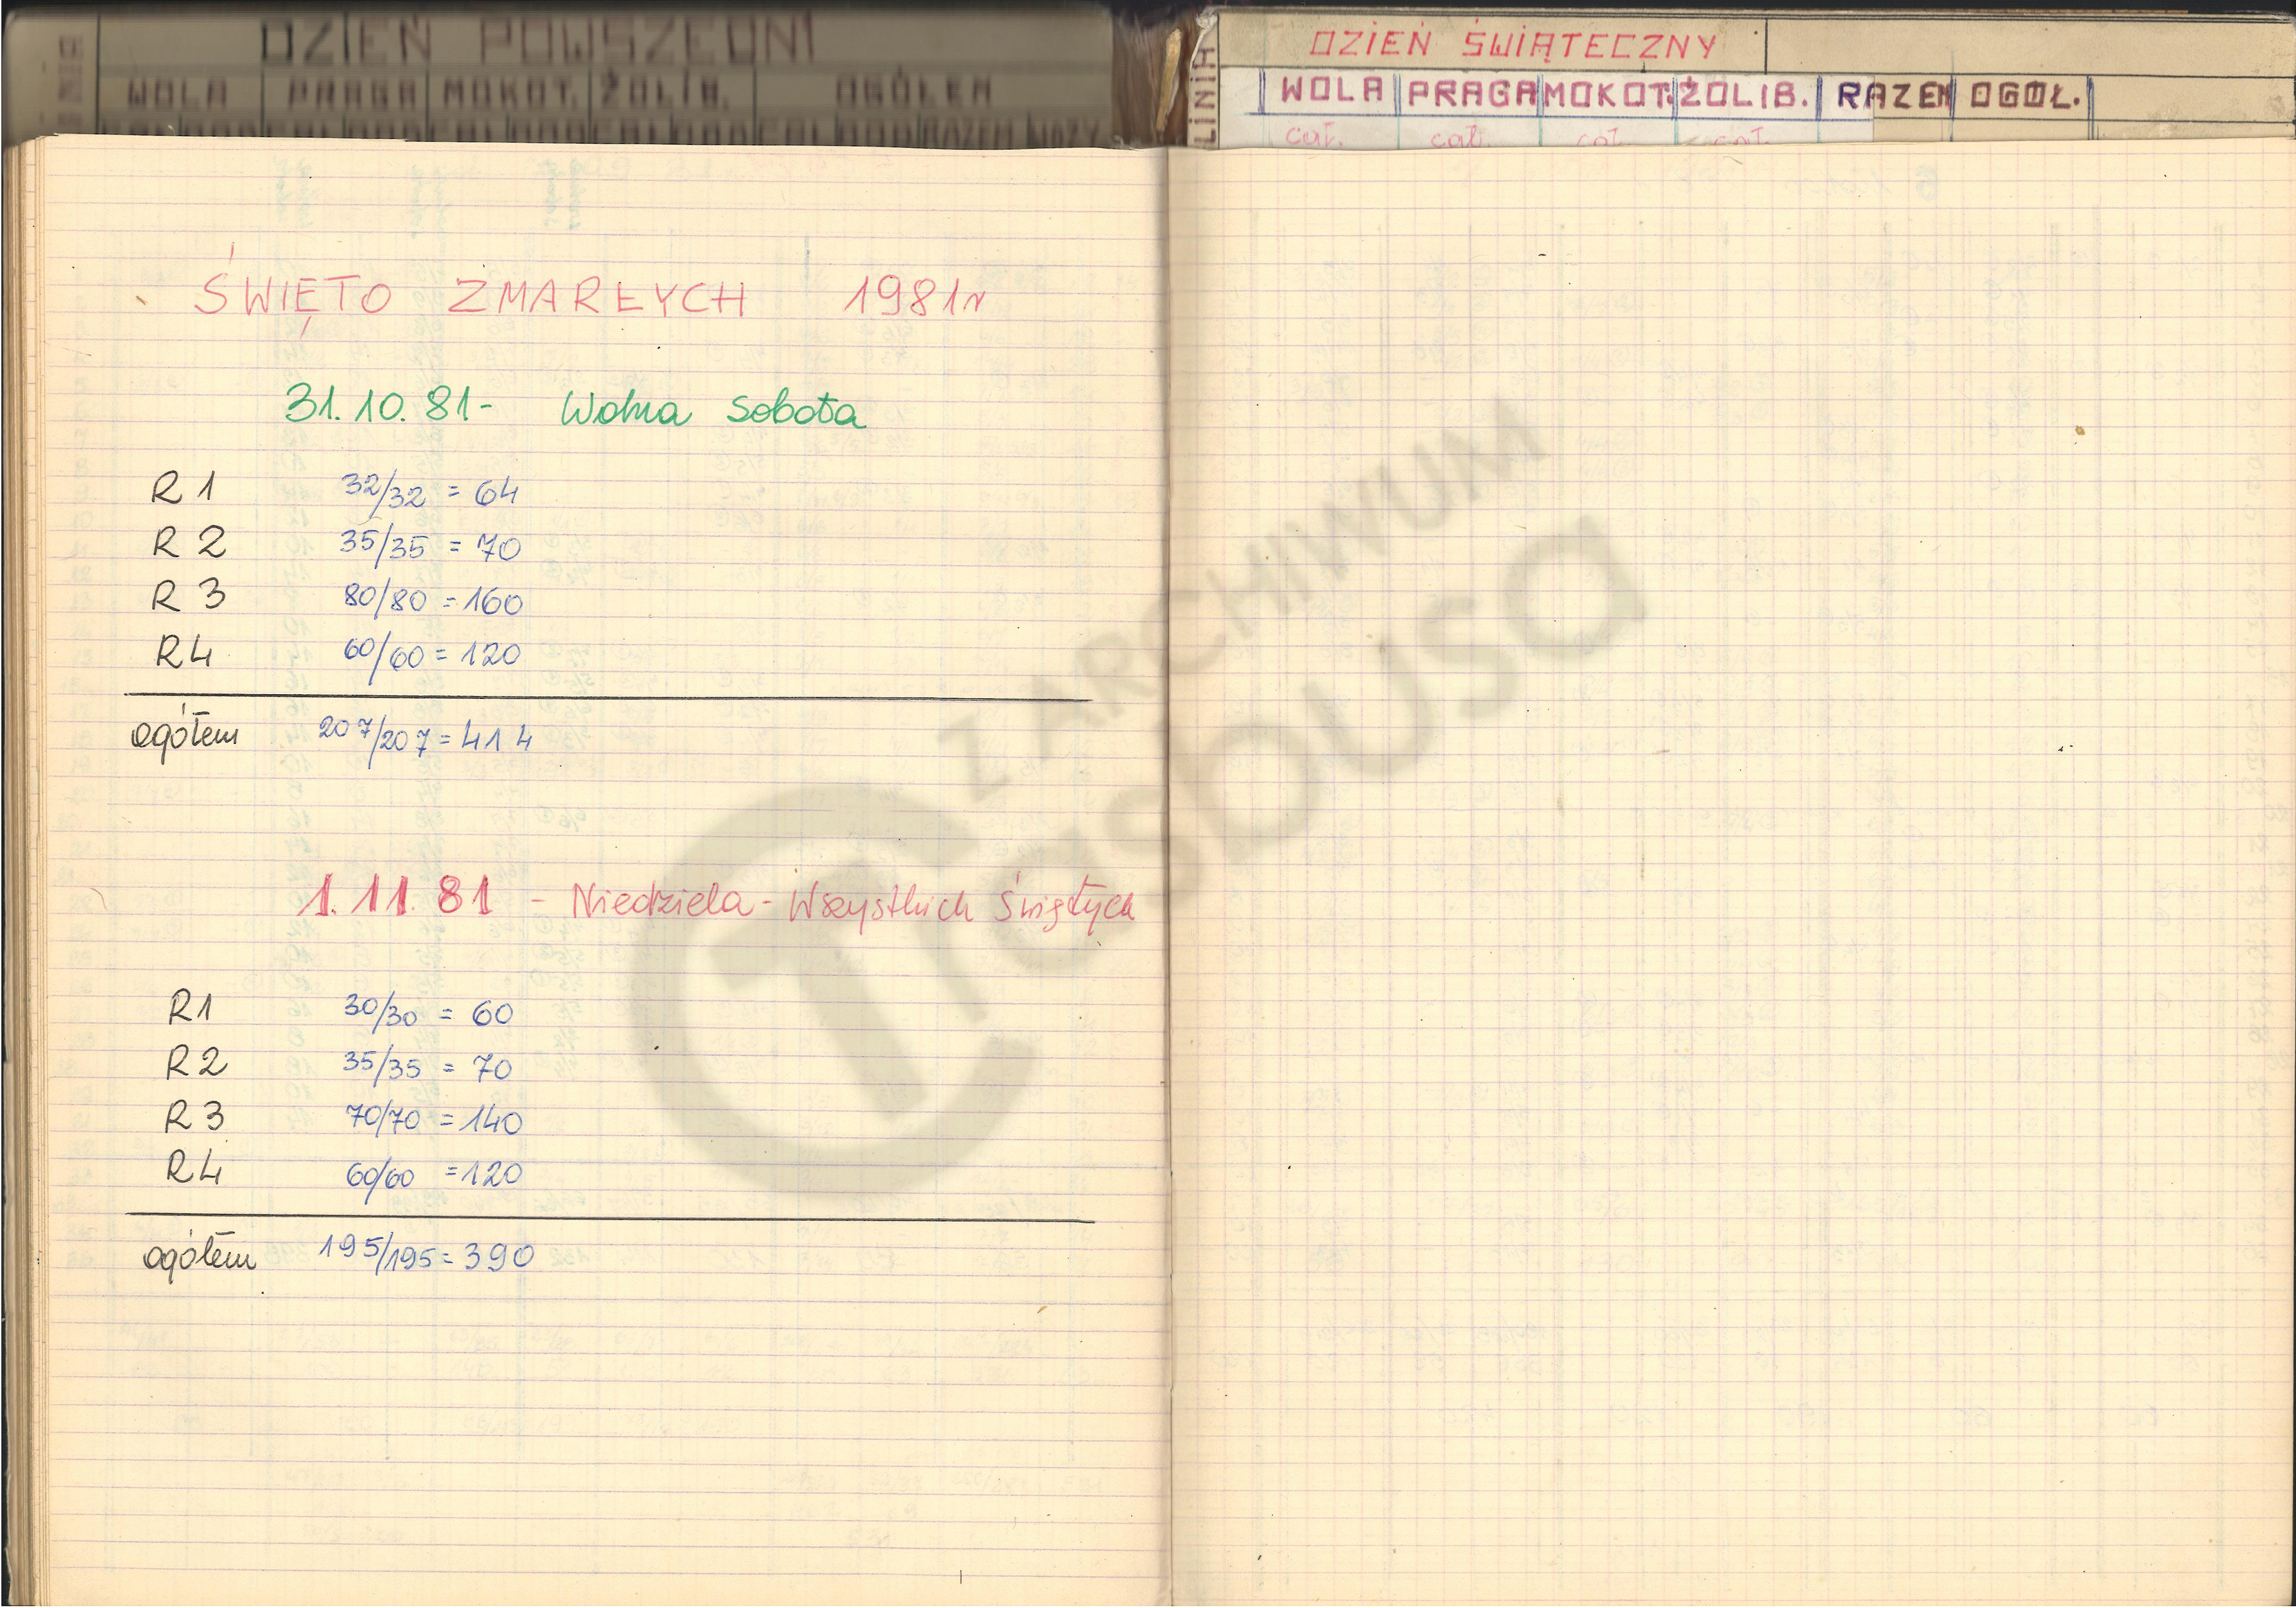 DZIEŃ POWSZEDNI
WOLA PRAGA MOKOT. ŻOLIB. OGÓŁEM
DZIEŃ ŚWIĄTECZNY
LINIA
WOLA PRAGA MOKOT. ŻOLIB. RAZEM OGÓŁ.
cał. cał. cał. cał.
ŚWIĘTO ZMARŁYCH 1981r
31.10.81- Wolna Sobota
R1 32/32 = 64
R2 35/35 = 70
R3 80/80 = 160
R4 60/60 = 120
ogółem 207/207 = 414
1.11.81 - Niedziela - Wszystkich Świętych
R1 30/30 = 60
R2 35/35 = 70
R3 70/70 = 140
R4 60/60 = 120
ogółem 195/195 = 390
Z ARCHIWUM
TGSDUSA